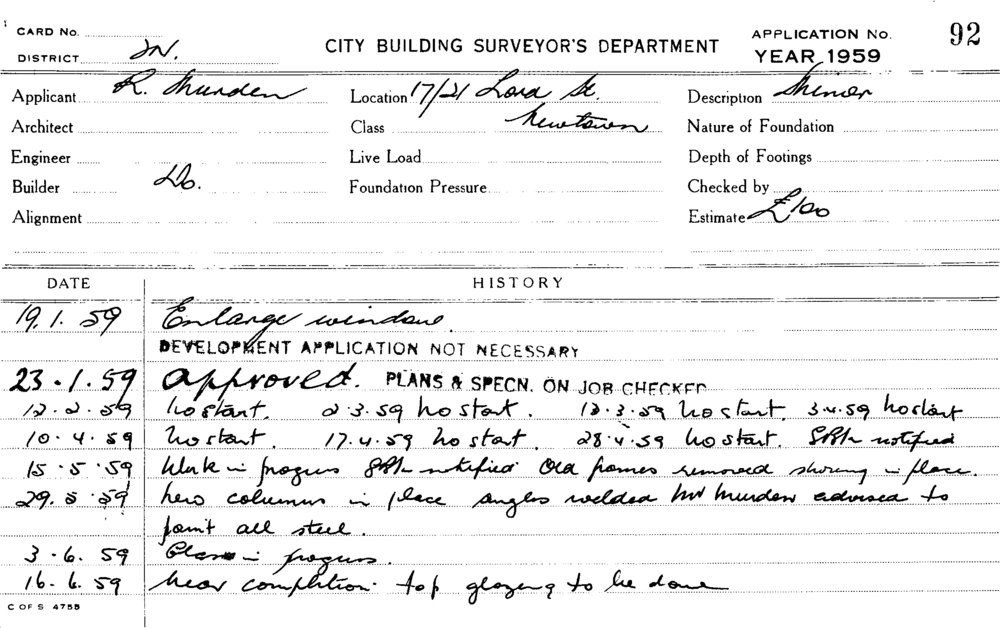 CARD No.
CITY BUILDING SURVEYOR'S DEPARTMENT
APPLICATION No. 92
YEAR 1959
DISTRICT
Applicant R. Murden
Location 17/21 Lord St.
Description
Architect
Class Newtown
Nature of Foundation
Engineer
Live Load
Depth of Footings
Builder Do.
Foundation Pressure
Checked by
Alignment
Estimate £100
DATE HISTORY
19.1.59 Enlarge window.
DEVELOPMENT APPLICATION NOT NECESSARY
23.1.59 Approved. PLANS & SPECN. ON JOB CHECKED
12.2.59 No start. 2.3.59 No start. 13.3.59 No start. 3.4.59 No start
10.4.59 No start. 17.4.59 No start. 28.4.59 No start. notified
15.5.59 Work in progress notified. Old frames removed shoring in place.
29.5.59 New columns in place angles welded Mr Murden advised to
paint all steel.
3.6.59 in progress.
16.6.59 Near completion. top glazing to be done
C OF S 4755